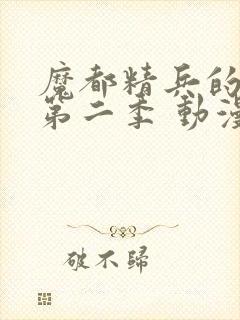 魔都精兵的
第二季 動漫
破不歸